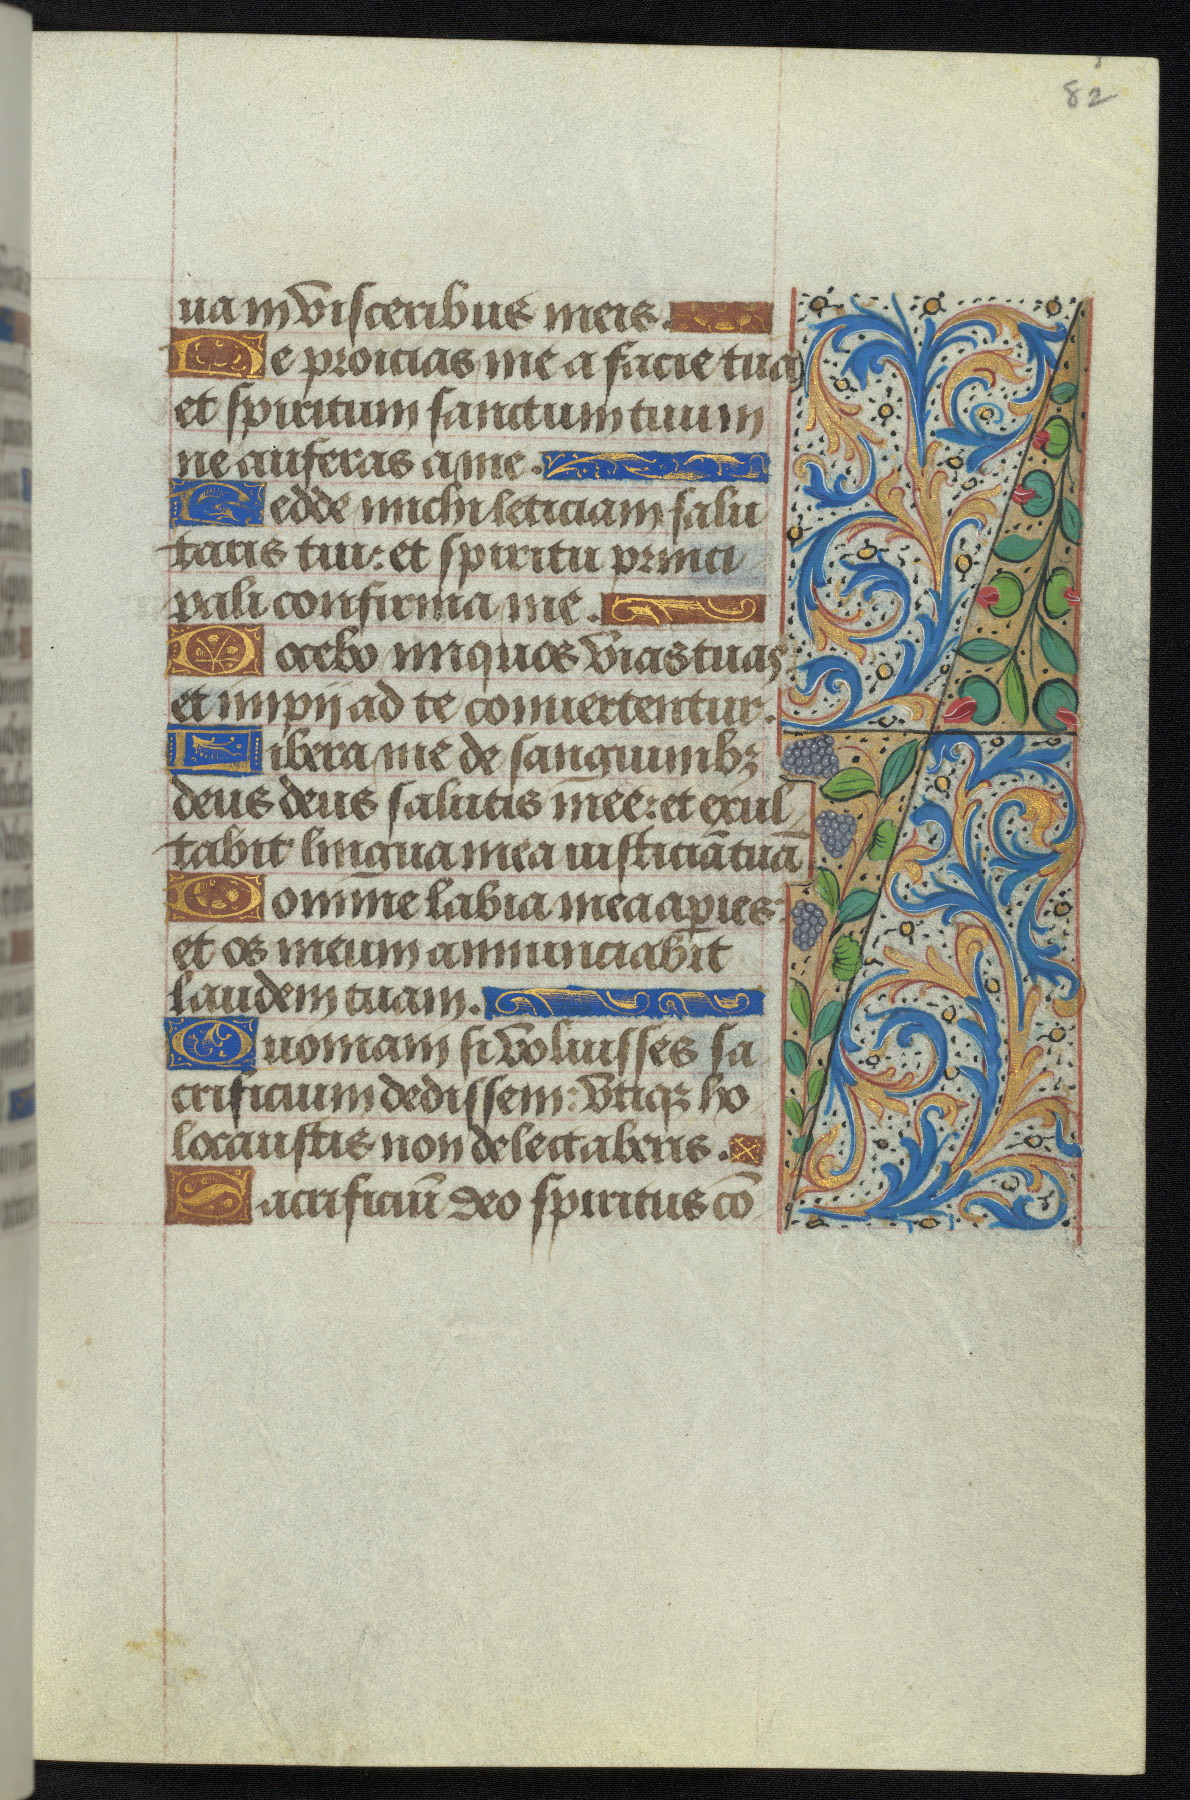 82
uam visceribus meis.
Ne proicias me a facie tua
et spiritum sanctum tuum
ne auferas a me.
Redde michi leticiam salu
taris tui: et spiritu princi
pali confirma me.
Docebo iniquos vias tuas
et impij ad te conuertentur.
Libera me de sanguinibꝫ
deus deus salutis mee: et exul
tabit lingua mea iusticiā tuā
Domine labia mea aperies:
et os meum annunciabit
laudem tuam.
Quoniam si voluisses sa
crificium dedissem: vtiqꝫ ho
locaustis non delectaberis.
Sacrificiū deo spiritus cō